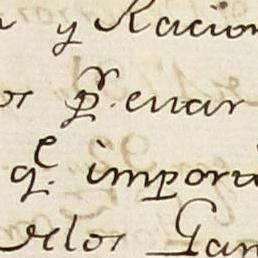 y Racion
os pr. evar
qe. impor
delos Gan